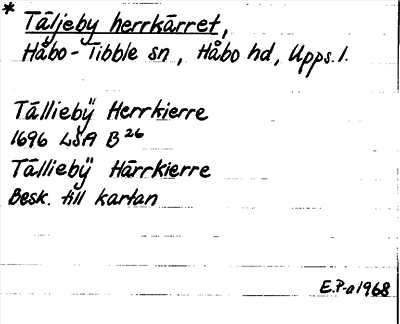 * Täljeby herrkärret,
Håbo-Tibble sn, Håbo hd, Upps. l.
Tälliebÿ Herrkierre
1696 LSA B 26
Tällie bÿ Härrkierre
Besk. till kartan
E.P-a 1968